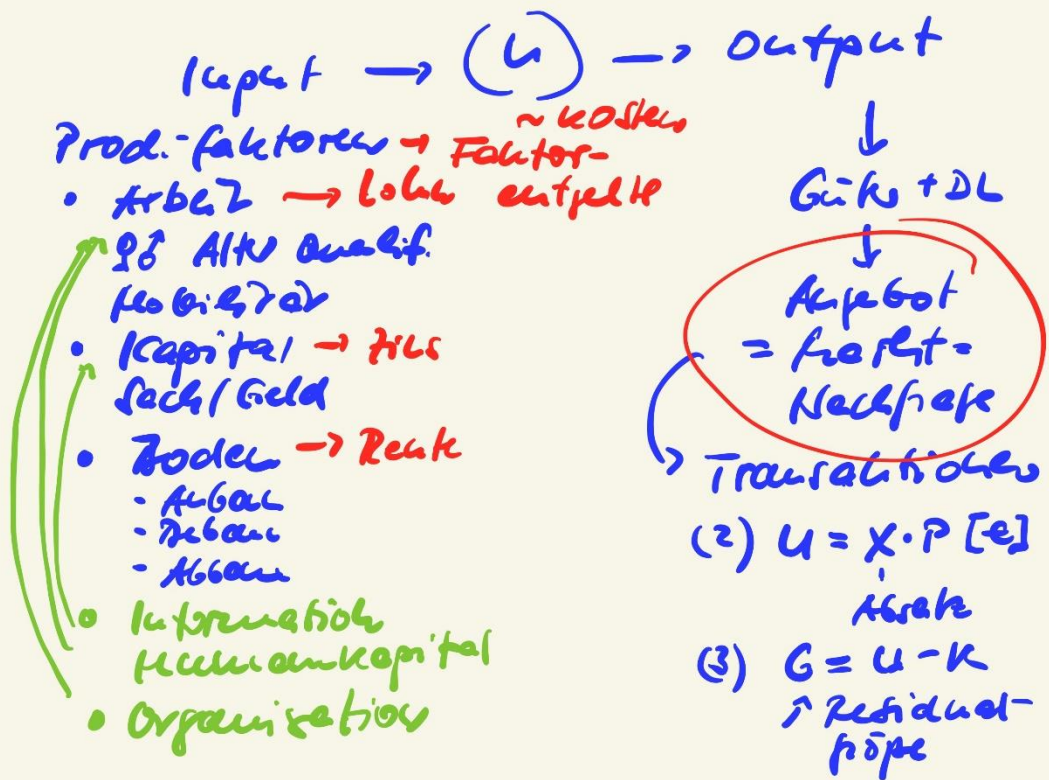 Input → (U) → Output
Prod.-faktoren → Faktor-
~ Kosten
entgelte
• Arbeit → Lohn
♀♂ Alter Qualif.
Mobilität
• Kapital → Zins
Sach/Geld
• Boden → Rente
- Anbau
- Bebau
- Abbau
• Information
Humankapital
• Organisation
↓
Güter + DL
↓
Angebot
= Markt =
Nachfrage
Transaktionen
(2) U = X · P [€]
Absatz
(3) G = U - K
↑ Residual-
größe